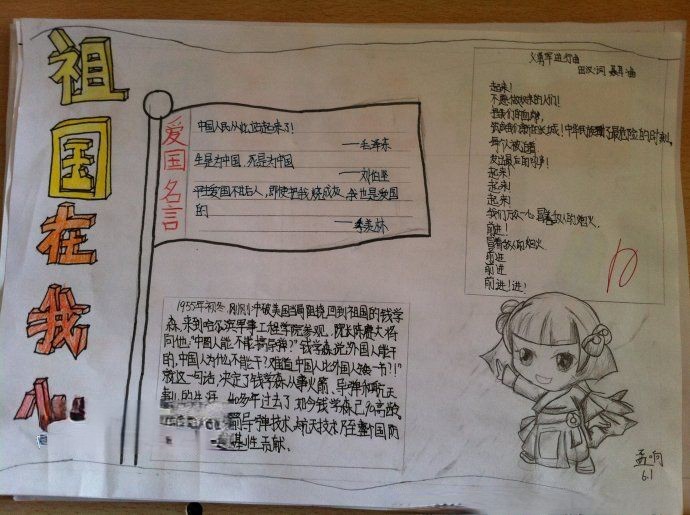 祖国在我心
爱国名言
中国人民从此站起来了!
——毛泽东
生是为中国,死是为中国
——刘伯坚
平生爱国不甘后人,即使把我烧成灰,我也是爱国
的
——李美林
义勇军进行曲
田汉:词 聂耳:曲
起来!
不愿做奴隶的人们!
把我们的血肉,
筑成我们新的长城!中华民族到了最危险的时刻,
每个人被迫着
发出最后的吼声!
起来!
起来!
起来!
我们万众一心,冒着敌人的炮火,
前进!
冒着敌人的炮火
前进
前进
前进!进!
1955年初冬,刚刚冲破美国当局阻挠回到祖国的钱学
森,来到哈尔滨军事工程学院参观。院长陈赓大将
问他:"中国人能不能搞导弹?"钱学森说:"外国人能干
的,中国人为什么不能干?难道中国人比外国人矮一节?!"
就这一句话,决定了钱学森从事火箭、导弹和航天
的生涯。40多年过去了,如今钱学森已为
导弹技术、航天技术乃至整个国防
性贡献。
孟响
6.1